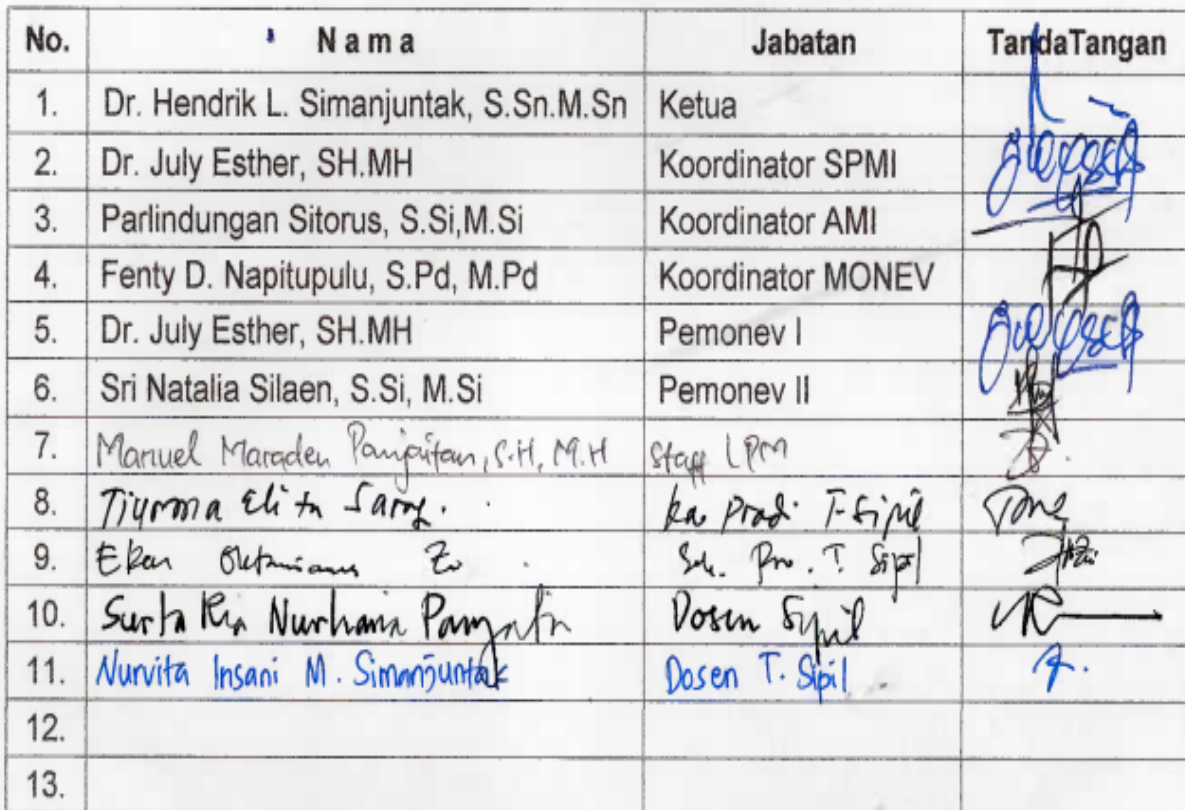 No. N a m a Jabatan TandaTangan
1. Dr. Hendrik L. Simanjuntak, S.Sn.M.Sn Ketua
2. Dr. July Esther, SH.MH Koordinator SPMI
3. Parlindungan Sitorus, S.Si,M.Si Koordinator AMI
4. Fenty D. Napitupulu, S.Pd, M.Pd Koordinator MONEV
5. Dr. July Esther, SH.MH Pemonev I
6. Sri Natalia Silaen, S.Si, M.Si Pemonev II
7. Manuel Maraden Panjaitan, S.H, M.H Staff LPM
8. Tiurma Elita Ka Prodi T. Sipil
9. T. Sipil
10. Surta Ria Nurhana Dosen Sipil
11. Nurvita Insani M. Simanjuntak Dosen T. Sipil
12.
13.